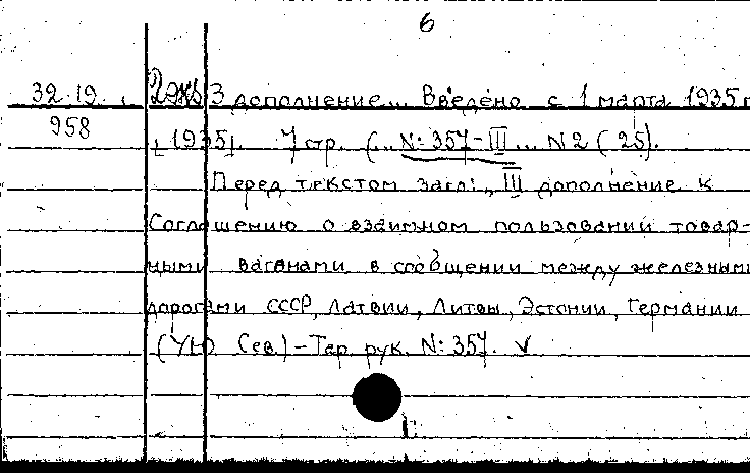 6
32.19. 2экз 3 дополнение... Введено с 1 марта 1935 г
958 [1935]. 7 стр. (... N: 357-III ... N2 (25).
Перед текстом загл: „III дополнение к
Соглашению о взаимном пользовании товар-
ными вагонами в сообщении между железными
дорогами СССР, Латвии, Литвы, Эстонии, Германии
(Ую Сев.) - Тар. рук. N: 357. V